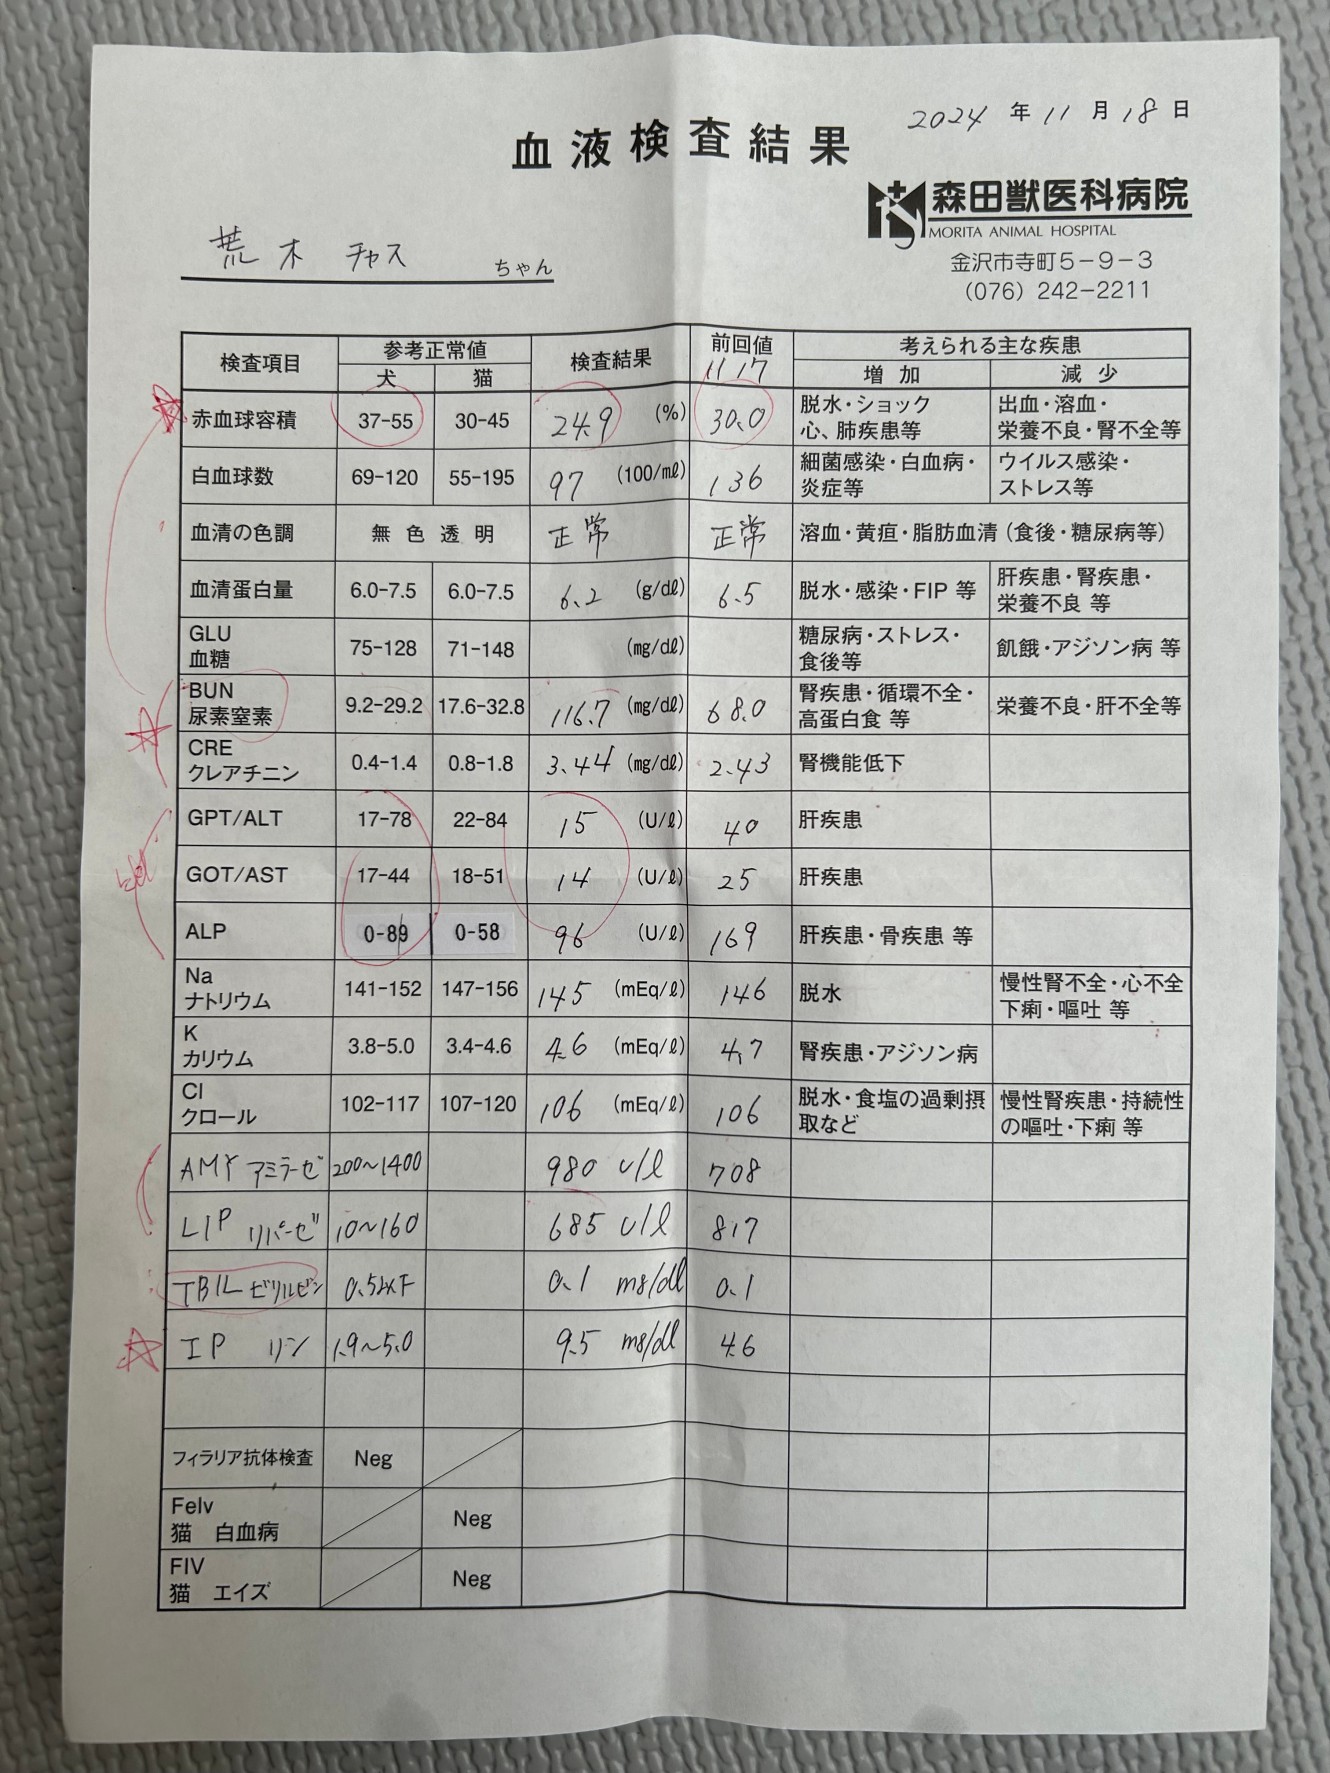 2024 年 11 月 18 日
血液検査結果
森田獣医科病院
MORITA ANIMAL HOSPITAL
金沢市寺町5-9-3
(076) 242-2211
荒木 チャス ちゃん
検査項目 参考正常値 検査結果 前回値 考えられる主な疾患
犬 猫 11/17 増加 減少
赤血球容積 37-55 30-45 24.9 (%) 30.0 脱水・ショック 出血・溶血・
心、肺疾患等 栄養不良・腎不全等
白血球数 69-120 55-195 97 (100/mℓ) 136 細菌感染・白血病・ ウイルス感染・
炎症等 ストレス等
血清の色調 無色透明 正常 正常 溶血・黄疸・脂肪血清(食後・糖尿病等)
血清蛋白量 6.0-7.5 6.0-7.5 6.2 (g/dℓ) 6.5 脱水・感染・FIP 等 肝疾患・腎疾患・
栄養不良 等
GLU 75-128 71-148 (mg/dℓ) 糖尿病・ストレス・ 飢餓・アジソン病 等
血糖 食後等
BUN 9.2-29.2 17.6-32.8 116.7 (mg/dℓ) 68.0 腎疾患・循環不全・ 栄養不良・肝不全等
尿素窒素 高蛋白食 等
CRE 0.4-1.4 0.8-1.8 3.44 (mg/dℓ) 2.43 腎機能低下
クレアチニン
GPT/ALT 17-78 22-84 15 (U/ℓ) 40 肝疾患
GOT/AST 17-44 18-51 14 (U/ℓ) 25 肝疾患
ALP 0-89 0-58 96 (U/ℓ) 169 肝疾患・骨疾患 等
Na 141-152 147-156 145 (mEq/ℓ) 146 脱水 慢性腎不全・心不全
ナトリウム 下痢・嘔吐 等
K 3.8-5.0 3.4-4.6 4.6 (mEq/ℓ) 4.7 腎疾患・アジソン病
カリウム
Cl 102-117 107-120 106 (mEq/ℓ) 106 脱水・食塩の過剰摂 慢性腎疾患・持続性
クロール 取など の嘔吐・下痢 等
AMY アミラーゼ 200~1400 980 U/l 708
LIP リパーゼ 10~160 685 U/l 817
TBIL ビリルビン 0.5以下 0.1 mg/dl 0.1
IP リン 1.9~5.0 9.5 mg/dl 4.6
フィラリア抗体検査 Neg
Felv Neg
猫 白血病
FIV Neg
猫 エイズ